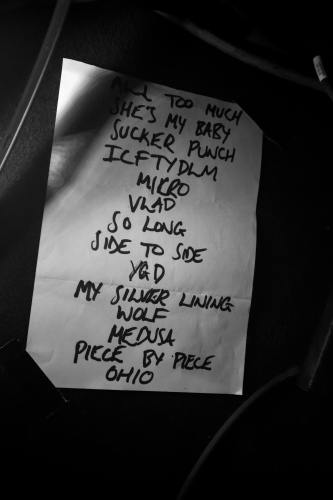 ALL TOO MUCH
SHE'S MY BABY
SUCKER PUNCH
ICFTYDLM
MIKRO
VLAD
SO LONG
SIDE TO SIDE
YGD
MY SILVER LINING
WOLF
MEDUSA
PIECE BY PIECE
OHIO